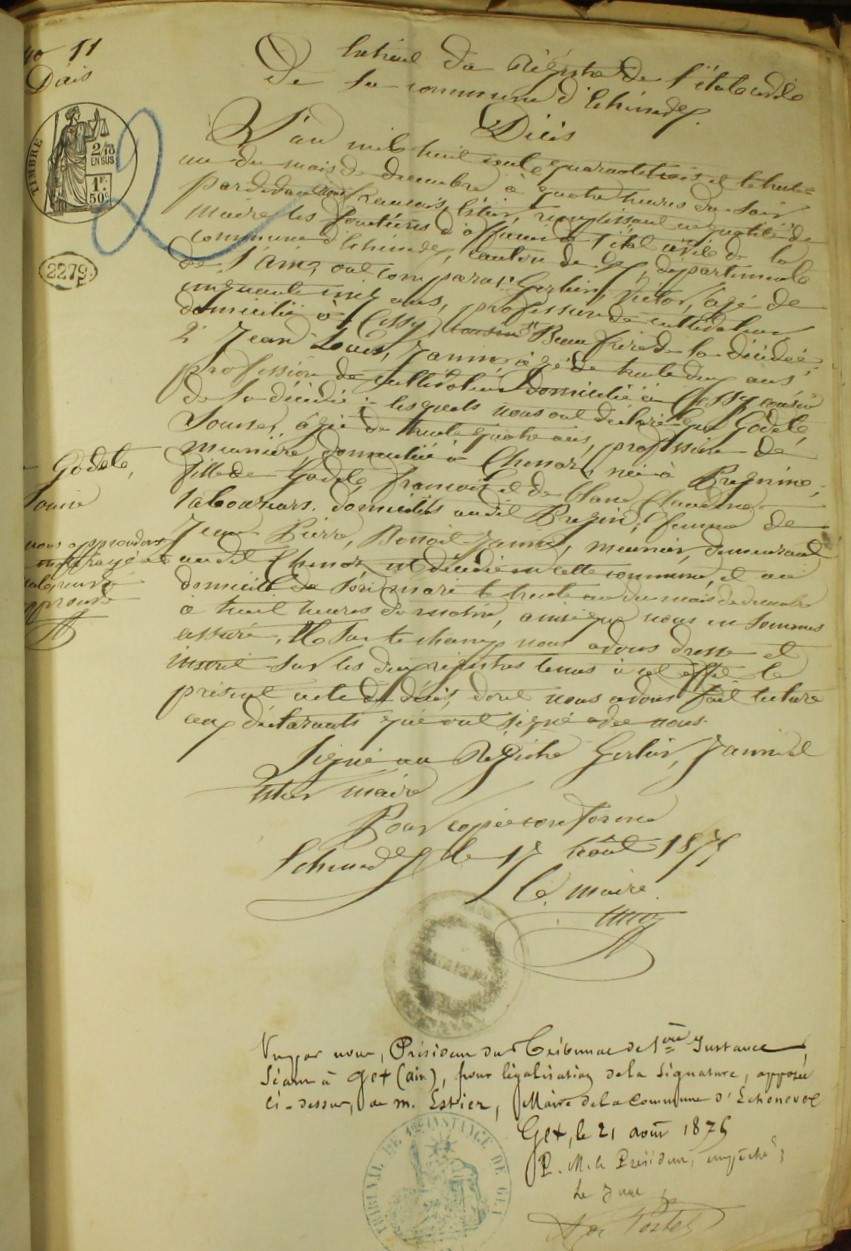 No 11
Décès
TIMBRE
2/10
EN SUS
1F
50c
2279
Extrait du Régistre de l'état civil
De la commune d'Echenevex.
Décès
L'an mil huit cent quarante trois et le trente
un du mois de décembre à quatre heures du soir
par devant nous François Estier, remplissant en qualité de
maire les fonctions d'officier de l'état civil de la
commune d'Echenevex, canton de Gex, département
de l'ain, ont comparu 1° Gerlier, Victor, âgé de
cinquante ans, profession de cultivateur
domicilié à Cessy Beau frère de la décédée
2° Jean Louis, Janin âgé de trente ans
profession de cultivateur domicilié à Cessy cousin
de la décédée; lesquels nous ont déclaré que Godet,
Louise, âgée de trente quatre ans, profession de
meunière, domiciliée à Chenoz, née à
fille de Godet françois et de
laboureurs domiciliés au dit femme de
Jean Pierre, Benoit Janin, meunier, demeurant
au dit Chenoz est décédée en cette commune, et au
domicile de son mari le trente un du mois de décembre
à huit heures du matin, ainsi que nous en sommes
assuré. Et sur le champ nous avons dressé et
inscrit sur les deux registres tenus à cet effet le
présent acte de décès, dont nous avons fait lecture
aux déclarants qui ont signé avec nous.
Godet,
Louise
nous approuvons
approuvé
Signé au Régistre Gerlier, Janin et
Estier maire
Pour copie conforme
Echenevex le 17 août 1875
Le maire
Vu par nous, Président du Tribunal de 1ère Instance,
séant à Gex (ain), pour légalisation de la signature, apposée
ci-dessus, de m. Estier, Maire de la commune d'Echenevex
Gex, le 21 août 1875
P. M. le Président, empêché,
Le Juge
TRIBUNAL DE 1ERE INSTANCE DE GEX